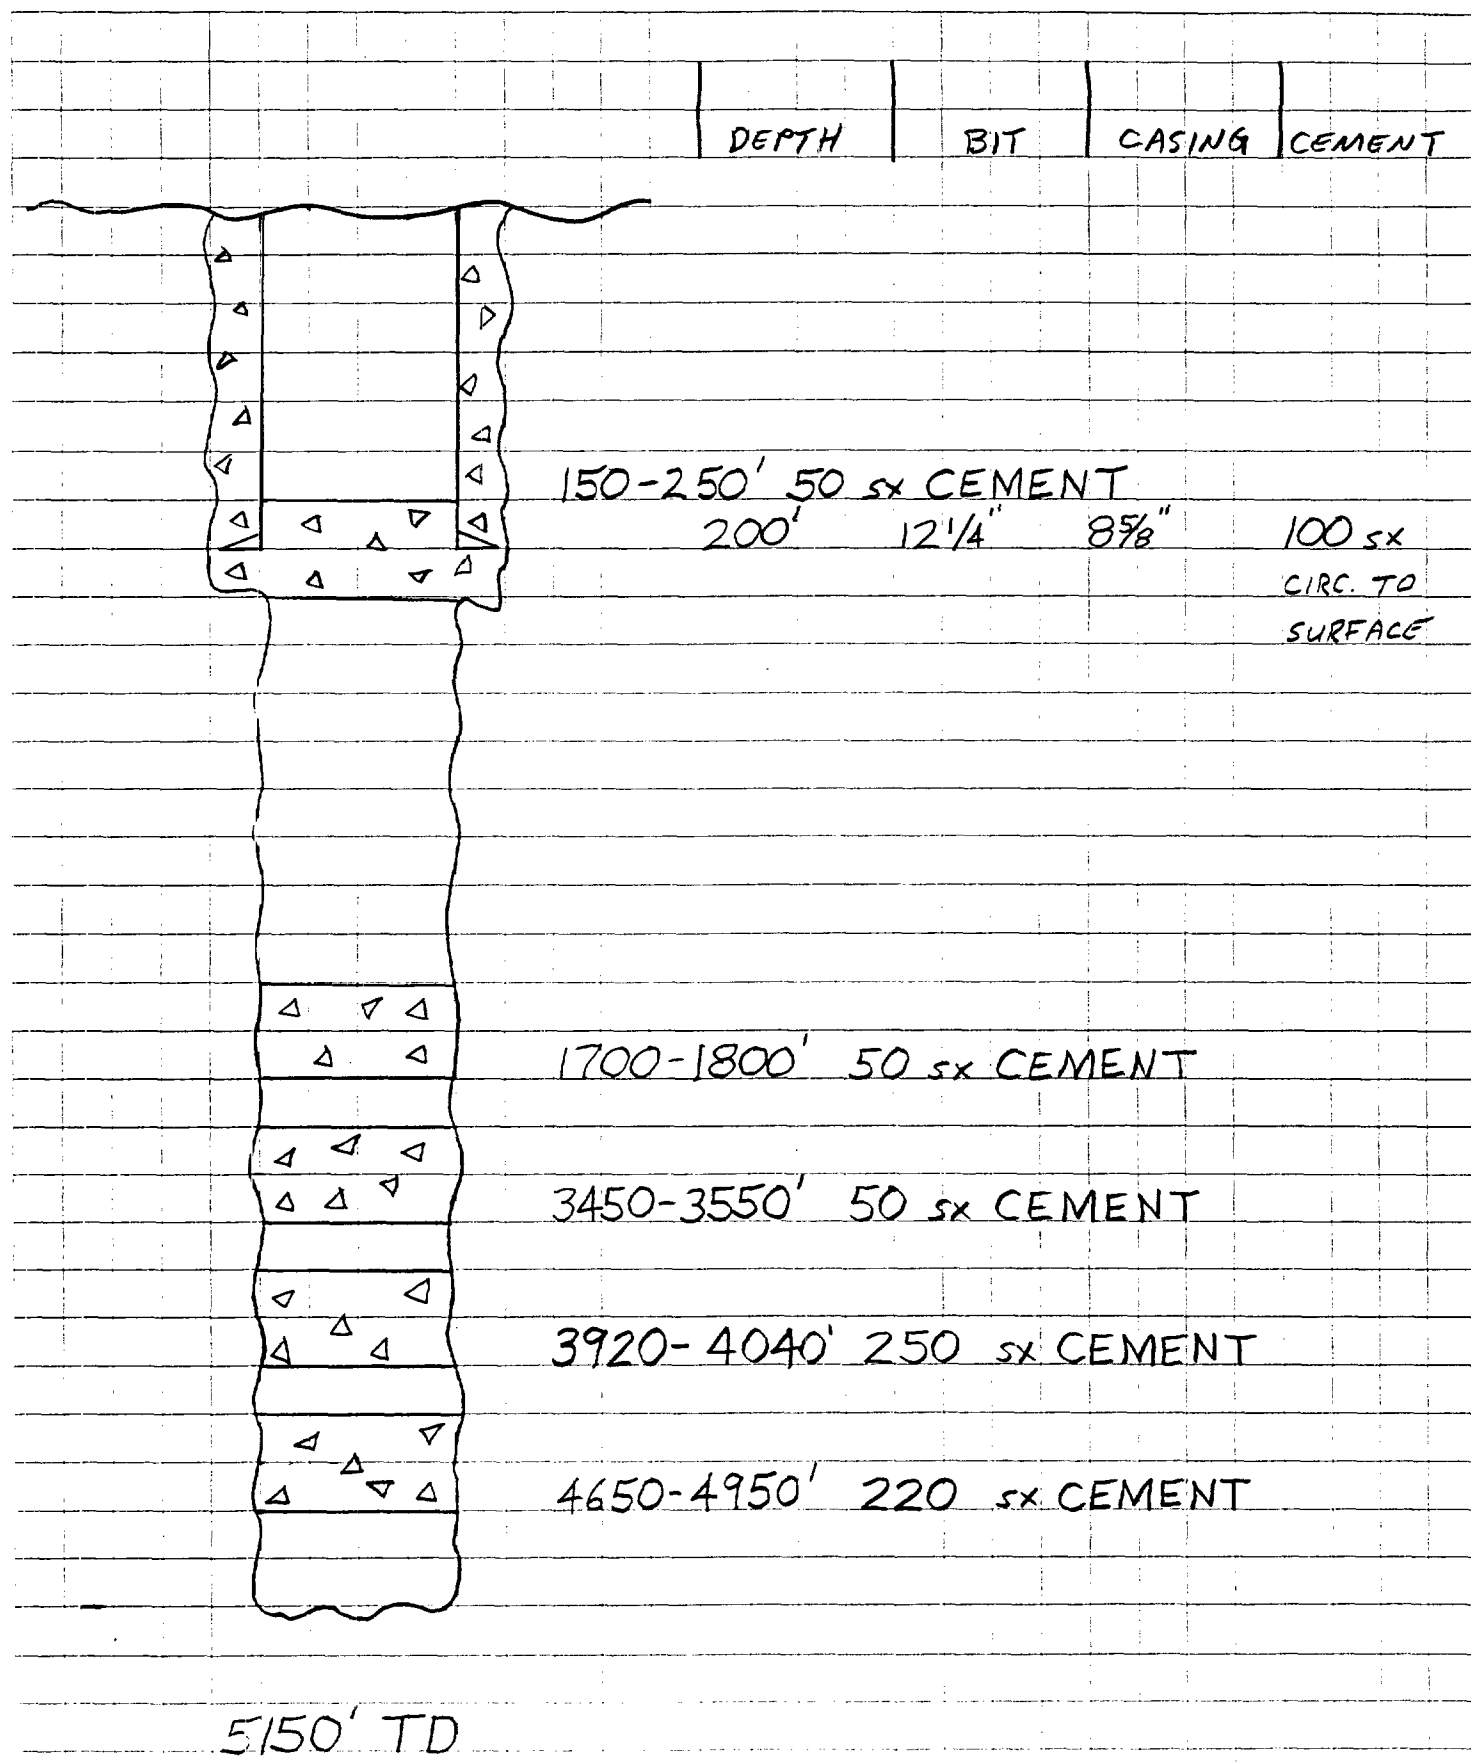 DEPTH BIT CASING CEMENT
150-250' 50 sx CEMENT
200' 12 1/4" 8 5/8" 100 sx
CIRC. TO
SURFACE
1700-1800' 50 sx CEMENT
3450-3550' 50 sx CEMENT
3920-4040' 250 sx CEMENT
4650-4950' 220 sx CEMENT
5150' TD